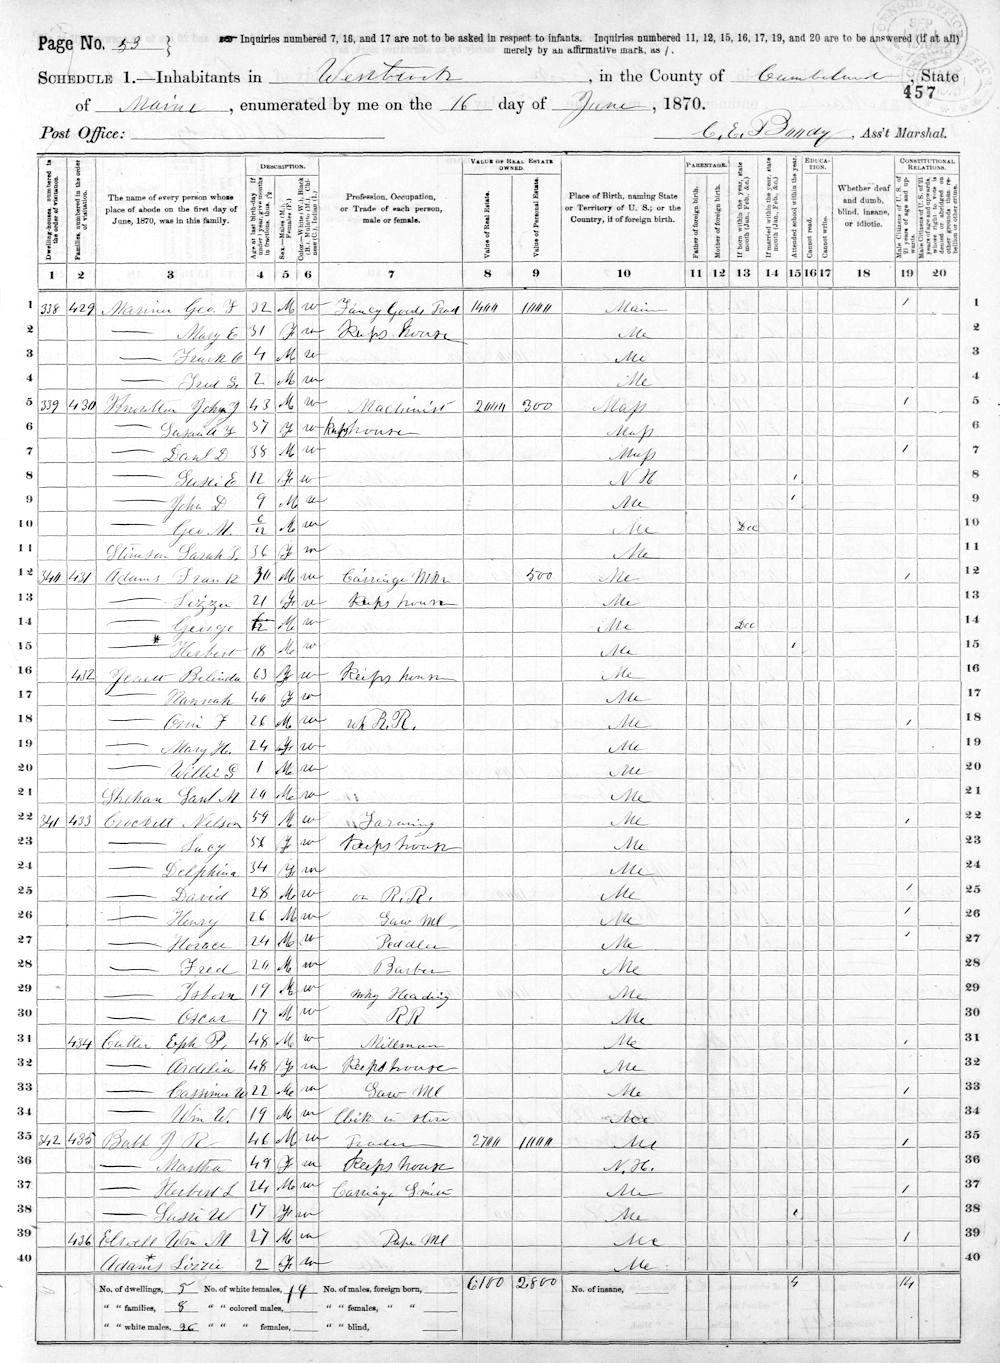 Page No. 53 } ☞ Inquiries numbered 7, 16, and 17 are not to be asked in respect to infants. Inquiries numbered 11, 12, 15, 16, 17, 19, and 20 are to be answered (if at all)
merely by an affirmative mark, as /.
SCHEDULE 1.—Inhabitants in Westbrook, in the County of Cumberland, State
457
of Maine, enumerated by me on the 16 day of June, 1870.
Post Office: C. E. Bundy, Ass't Marshal.
DESCRIPTION. VALUE OF REAL ESTATE OWNED. PARENTAGE. EDUCATION. CONSTITUTIONAL RELATIONS.
Dwelling-houses numbered in the order of visitation. Families, numbered in the order of visitation. The name of every person whose place of abode on the first day of June, 1870, was in this family. Age at last birth-day. If under 1 year, give months in fractions, thus, 3/12 Sex.—Males (M.), Females (F.) Color.—White (W.), Black (B.), Mulatto (M.), Chinese (C.), Indian (I.) Profession, Occupation, or Trade of each person, male or female. Value of Real Estate. Value of Personal Estate. Place of Birth, naming State or Territory of U. S.; or the Country, if of foreign birth. Father of foreign birth. Mother of foreign birth. If born within the year, state month (Jan., Feb., &c.) If married within the year, state month (Jan., Feb., &c.) Attended school within the year. Cannot read. Cannot write. Whether deaf and dumb, blind, insane, or idiotic. Male Citizens of U. S. of 21 years of age and upwards. Male Citizens of U. S. of 21 years of age and upwards, whose right to vote is denied or abridged on other grounds than rebellion or other crime.
1 2 3 4 5 6 7 8 9 10 11 12 13 14 15 16 17 18 19 20
1 338 429 Mariner Geo. F 32 M W Fancy Goods 1400 1000 Main / 1
2 —— Mary E 31 F W Keeps house Me 2
3 —— Frank O 4 M W Me 3
4 —— Fred S. 2 M W Me 4
5 339 430 Knowlton John J 43 M W Machinist 2000 300 Mass / 5
6 —— Susan F 37 F W Keeps house Mass 6
7 —— Danl D 38 M W Mass / 7
8 —— Susie E 12 F W N H / 8
9 —— John D 9 M W Me / 9
10 —— Geo M. 6/12 M W Me Dec 10
11 Stimson Sarah S. 36 F W Me 11
12 340 431 Adams Frank 30 M W Carriage Mkr 500 Me / 12
13 —— Lizzie 21 F W Keeps house Me 13
14 —— George M W Me Dec 14
15 * —— Herbert 18 M W Me / 15
16 432 Belinda 63 F W Keeps house Me 16
17 —— Hannah 40 F W Me 17
18 —— F 26 M W R.R. Me / 18
19 —— Mary H. 24 F W Me 19
20 —— Willie G 1 M W Me 20
21 Shehan Saml M 20 M W " Me 21
22 341 433 Crockett Nelson 59 M W Farming Me / 22
23 —— Lucy F W Keeps house Me 23
24 —— Delphina 34 F W Me 24
25 —— David 28 M W on R.R. Me / 25
26 —— Henry 26 M W Saw Ml Me / 26
27 —— Horace 24 M W Peddler Me / 27
28 —— Fred 20 M W Barber Me 28
29 —— Osborn 19 M W mkg Heading Me 29
30 —— Oscar 17 M W RR Me 30
31 434 Cutter Eph P. 48 M W Millman Me / 31
32 —— Ardelia 48 F W Keeps house Me 32
33 —— Cassimer W 22 M W Saw Ml Me / 33
34 —— Wm W. 19 M W Clerk in store Me 34
35 342 435 Babb J R 46 M W Trader 2700 1000 Me / 35
36 —— Martha 49 F W Keeps house N.H. 36
37 —— Herbert L 24 M W Carriage Smith Me / 37
38 —— Susie W 17 F W Me / 38
39 436 Elwell Wm M 27 M W Pape Ml Me / 39
40 Adams * Lizzie 2 F W Me 40
No. of dwellings, 5 No. of white females, 14 No. of males, foreign born, 6100 2800 No. of insane, 4 14
" " families, 8 " " colored males, " " females, " "
" " white males, 26 " " " females, " " blind,